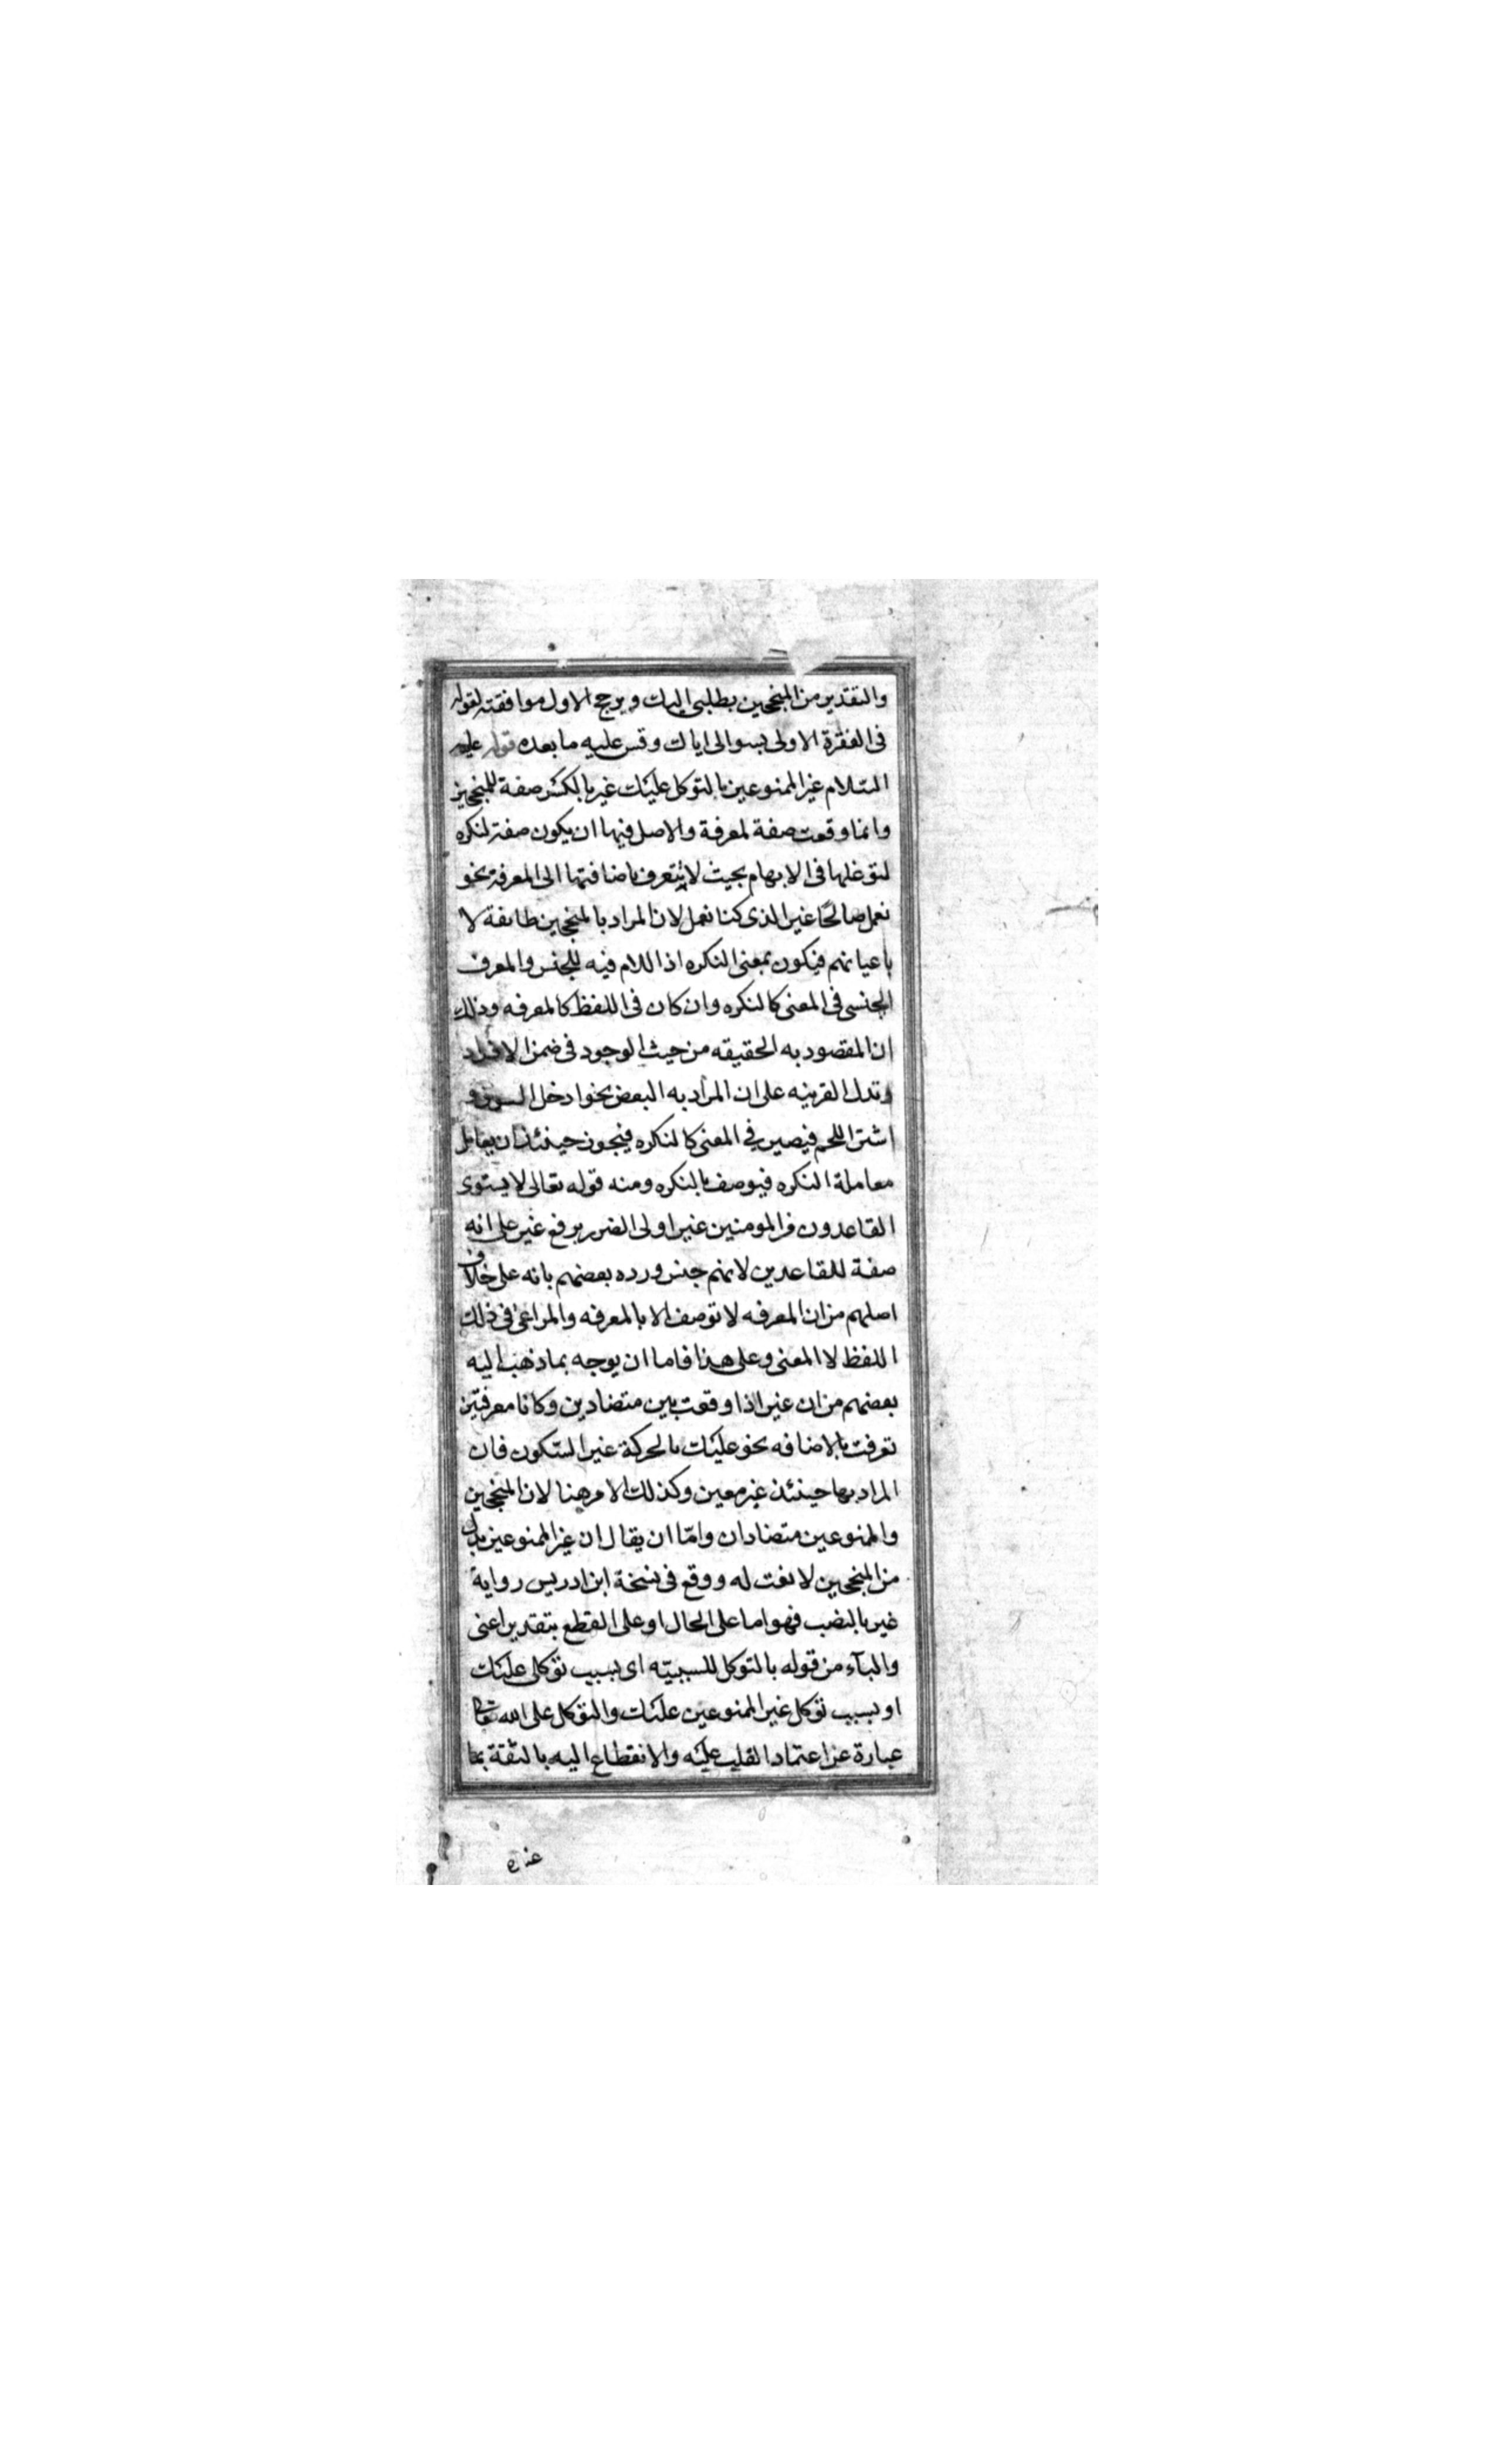 والتقدير من المنجحين بطلبى اليك ويرجح الاول موافقته لقوله
فى الفقرة الاولى بسوالى اياك وقس عليه ما بعده قوله عليه
السّلام غير الممنوعين بالتوكل عليك غير بالكسر صفة للمنجحين
وانما وقعت صفة لمعرفة والاصل فيها ان يكون صفة لنكره
لتوغلها فى الابهام بحيث لا يتعرف باضافتها الى المعرفة نحو
نعمل صالحًا غير الذى كنا نعمل لان المراد بالمنجحين طايفة لا
باعيانهم فيكون بمعنى النكره اذا اللام فيه للجنس والمعرف
الجنسى فى المعنى كالنكره وان كان فى اللفظ كالمعرفه وذلك
ان المقصود به الحقيقه من حيث الوجود فى ضمن الافراد
وتدل القرينه على ان المراد به البعض نحو ادخل السوق و
اشتر اللحم فيصير في المعنى كالنكره فيجوز حينئذ ان يعامل
معاملة النكره فيوصف بالنكره ومنه قوله تعالى لا يستوى
القاعدون من المومنين غير اولى الضرر برفع غير على انه
صفة للقاعدين لانهم جنس ورده بعضهم بانه على خلاف
اصلهم من ان المعرفه لا توصف الا بالمعرفه والمراعى فى ذلك
اللفظ لا المعنى وعلى هذا فاما ان يوجه بما ذهب اليه
بعضهم من ان غير اذا وقعت بين متضادين وكانا معرفتين
تعرفت بالاضافه نحو عليك بالحركة غير السّكون فان
المراد بها حينئذ غير معين وكذلك الامر هنا لان المنجحين
والممنوعين متضادان وامّا ان يقال ان غير الممنوعين بدل
من المنجحين لا نعت له ووقع فى نسخة ابن ادريس رواية
غير بالنصب فهو اما على الحال او على القطع بتقدير اعنى
والبآء من قوله بالتوكل للسببيّه اى بسبب توكلى عليك
او بسبب توكل غير الممنوعين عليك والتوكل على الله تعالى
عبارة عن اعتماد القلب عليه والانقطاع اليه بالثقة بما